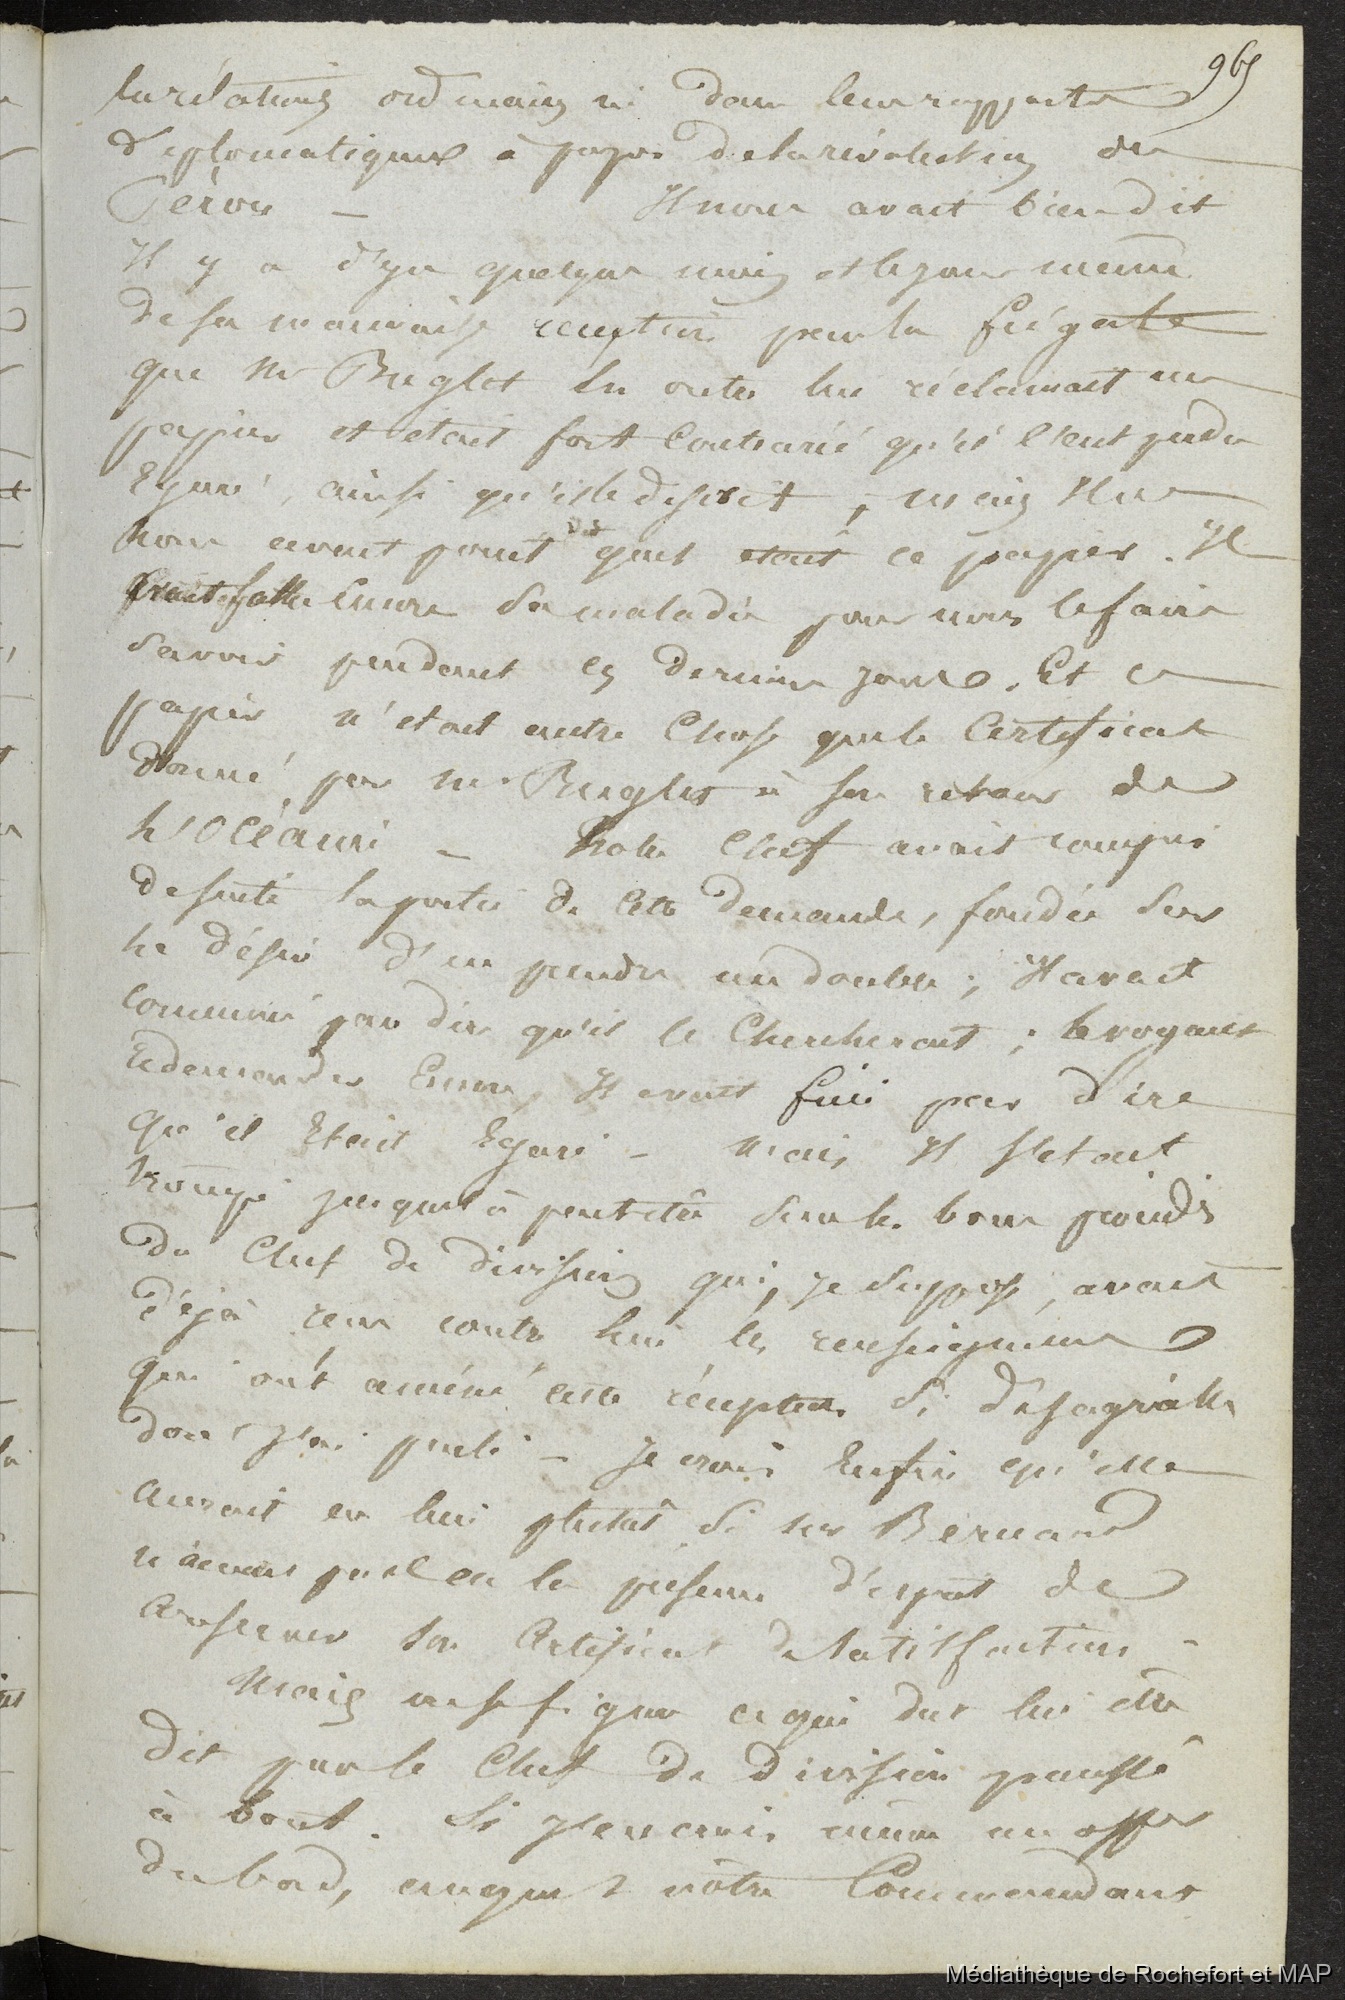 965
les rélations ordinaires ni dans leurs rapports
diplomatiques à propos de la révolution du
Pérou — Il nous avait bien dit
Il y a déjà quelques mois et le jour même
de sa mauvaise réception par la frégate
que Mr Buglet en outre lui réclamait un
papier et était fort contrarié qu'il l'eut perdu
Egaré, ainsi qu'il le disait ; mais Il ne
nous avait point dit quel était ce papier. Il
fallu Encore sa maladie pour nous le faire
savoir pendant ces derniers jours. Et ce
papier n'était autre chose que le Certificat
donné par Mr Buglet à son retour de
l'Océanie — Notre Chef avait compris
de suite la portée de cette demande, fondée sur
le désir d'en prendre un double ; Il avait
commencé par dire qu'il le chercherait ; le voyant
redemander Encore, Il avait fini par dire
qu'il Etait Egaré — mais Il s'etait
trompé jusques à peut être sur le bon poids
du Chef de division qui, je suppose, avait
déjà reçu contre lui les renseignemens
qui ont amené cette réception si désagréable
dont j'ai parlé — Je crois Enfin qu'elle
aurait eu lieu plutôt si Mr Bernard
n'avait pas eu la présence d'esprit de
conserver son Certificat de Satisfaction —
Mais on se figure ce qui dut lui être
dit par le Chef de division poussé
à bout. Si j'en crois même un offer
du bord, auquel nôtre Commandant